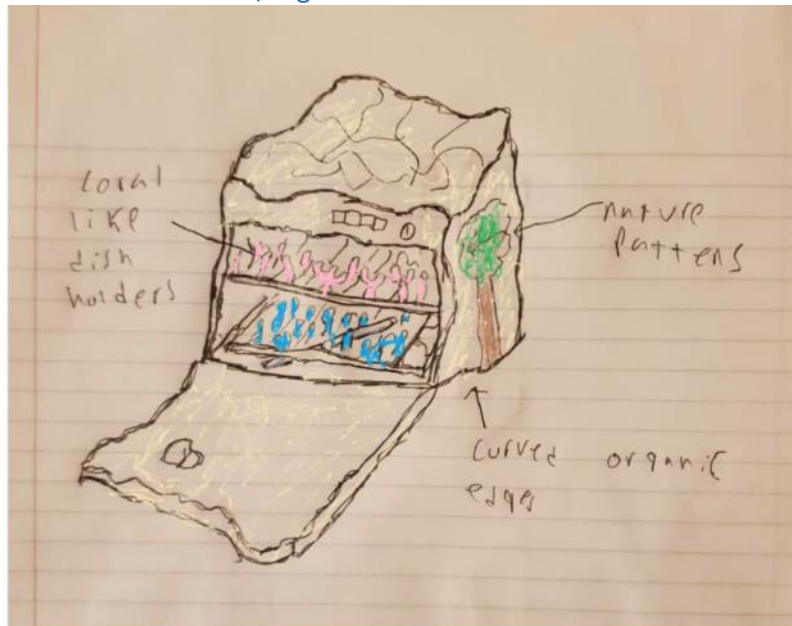 coral
like
dish
holders
nature
pattens
curved organic
edges